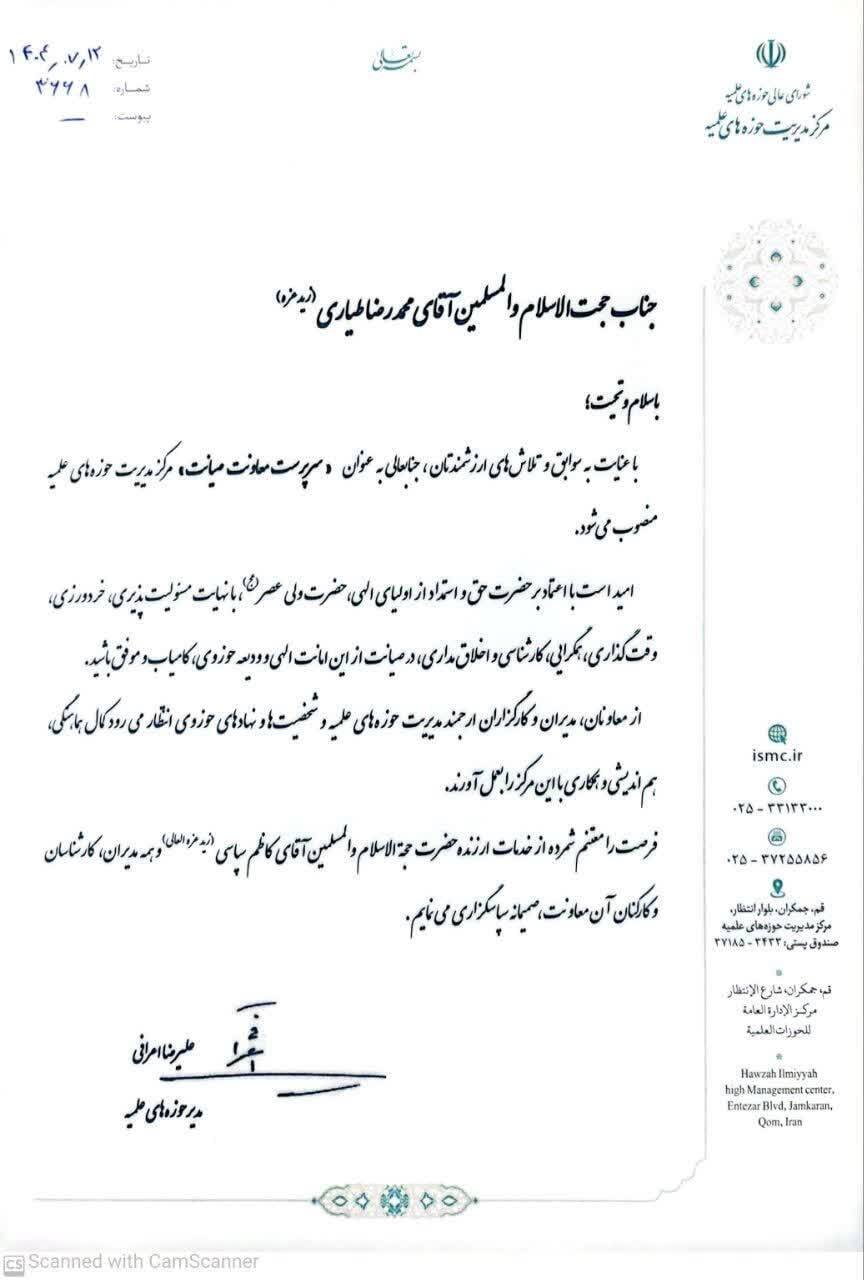 بسمه تعالی
شورای عالی حوزه های علمیه
مرکز مدیریت حوزه های علمیه
تاریخ: ۱۴۰۴/۰۷/۱۲
شماره: ۳۶۶۸
پیوست: —
جناب حجت الاسلام والمسلمین آقای محمدرضا طیاری (زید عزه)
باسلام و تحیت؛
با عنایت به سوابق و تلاش های ارزشمندتان، جنابعالی به عنوان «سرپرست معاونت صیانت» مرکز مدیریت حوزه های علمیه
منصوب می شود.
امید است با اعتماد بر حضرت حق و استمداد از اولیای الهی، حضرت ولی عصر(عج)، با نهایت مسئولیت پذیری، خردورزی،
وقت گذاری، همگرایی، کارشناسی و اخلاق مداری، در صیانت از این امانت الهی و ودیعه حوزوی، کامیاب و موفق باشید.
از معاونان، مدیران و کارگزاران ارجمند مدیریت حوزه های علمیه و شخصیت ها و نهادهای حوزوی انتظار می رود کمال هماهنگی،
هم اندیشی و همکاری با این مرکز را بعمل آورند.
فرصت را مغتنم شمرده از خدمات ارزنده حضرت حجة الاسلام والمسلمین آقای کاظم سپاسی (زید عزه العالی) و همه مدیران، کارشناسان
و کارکنان آن معاونت، صمیمانه سپاسگزاری می نمایم.
علیرضا اعرافی
مدیر حوزه های علمیه
ismc.ir
۰۲۵ - ۳۳۱۳۳۰۰۰
۰۲۵ - ۳۷۲۵۵۸۵۶
قم، جمکران، بلوار انتظار،
مرکز مدیریت حوزه‌های علمیه
صندوق پستی: ۳۴۳۳ - ۳۷۱۸۵
قم، جمکران، شارع الإنتظار
مرکز الإدارة العامة
للحوزات العلمیة
Hawzah Ilmiyyah
high Management center,
Entezar Blvd, Jamkaran,
Qom, Iran
CS Scanned with CamScanner